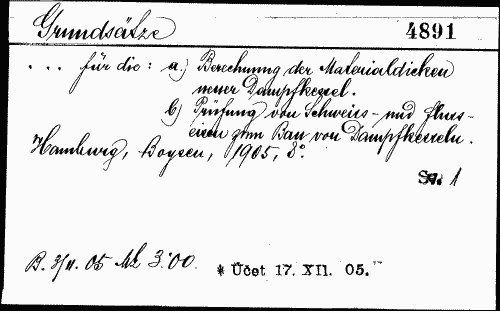 Grundsätze 4891
... für die: a.) Berechnung der Materialdicken
neuer Dampfkessel.
b.) Prüfung von Schweiss- und Fluss-
eisen zum Bau von Dampfkesseln.
Hamburg, Boysen, 1905, 8°.
1
B. 3/11. 05 Mk 3·00.
* Účet 17. XII. 05.